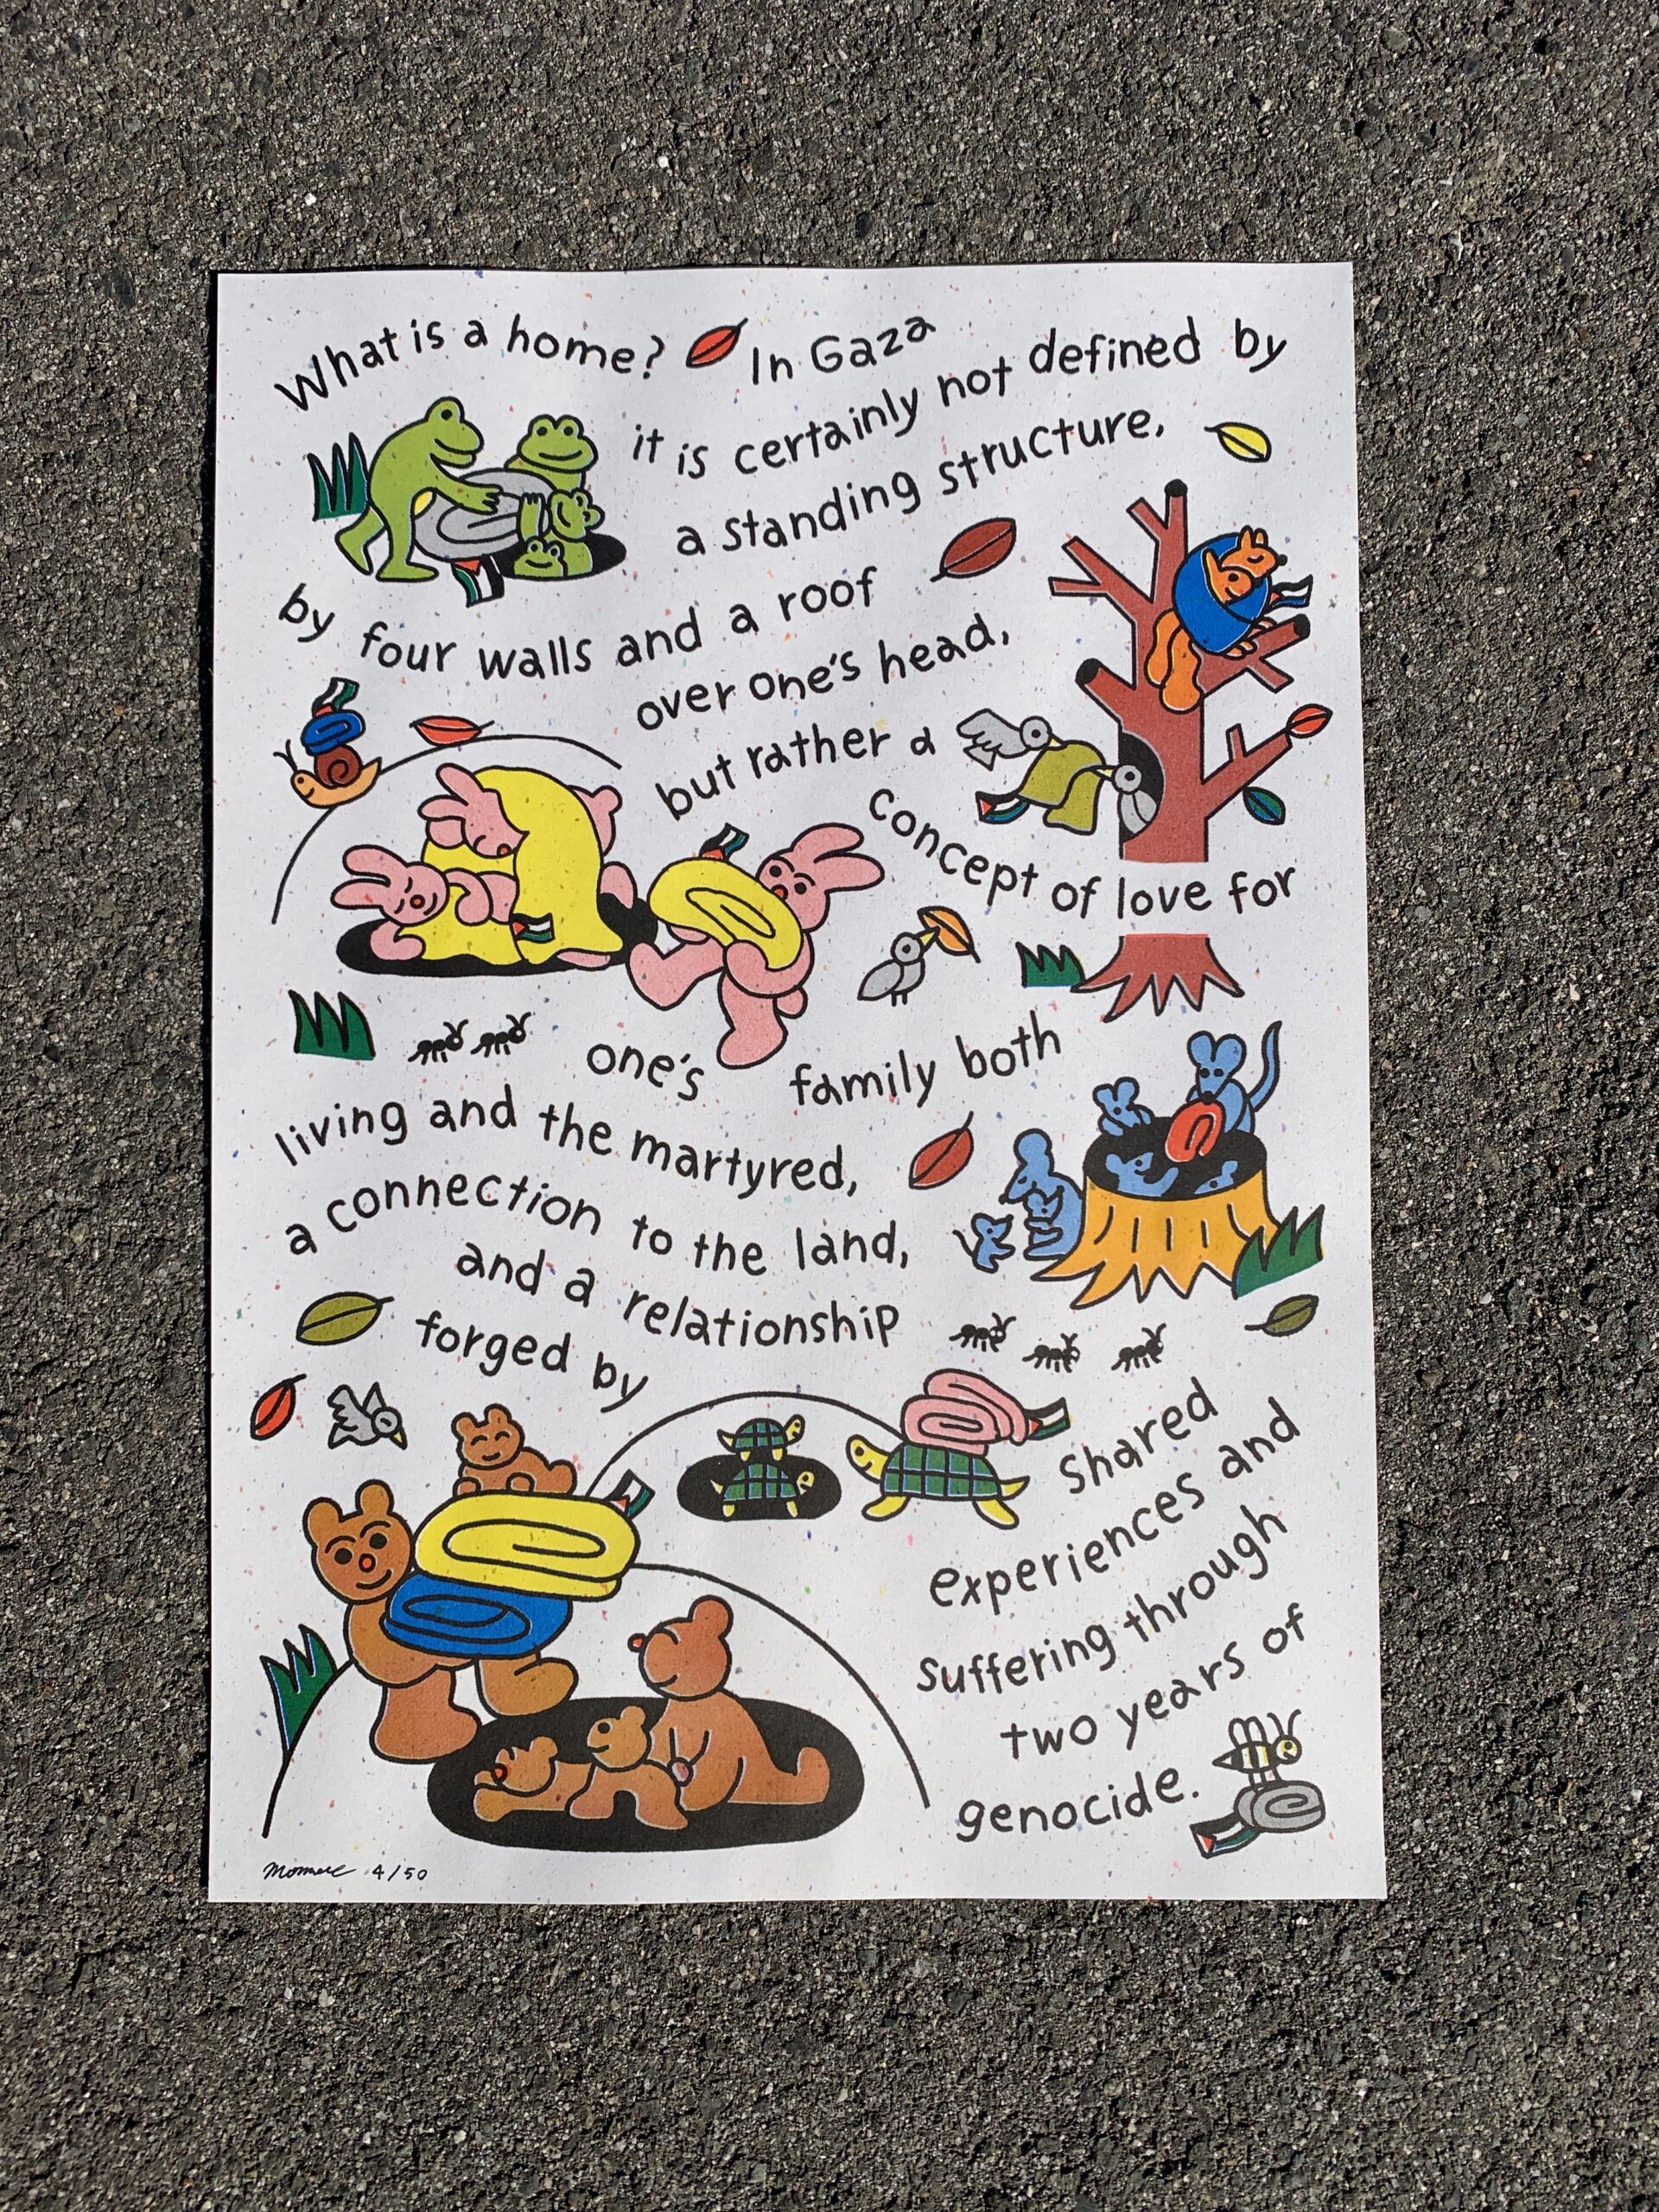 What is a home? In Gaza
it is certainly not defined by
a standing structure,
by four walls and a roof
over one's head,
but rather a
concept of love for
one's family both
living and the martyred,
a connection to the land,
and a relationship
forged by
Shared
experiences and
suffering through
two years of
genocide.
4/50